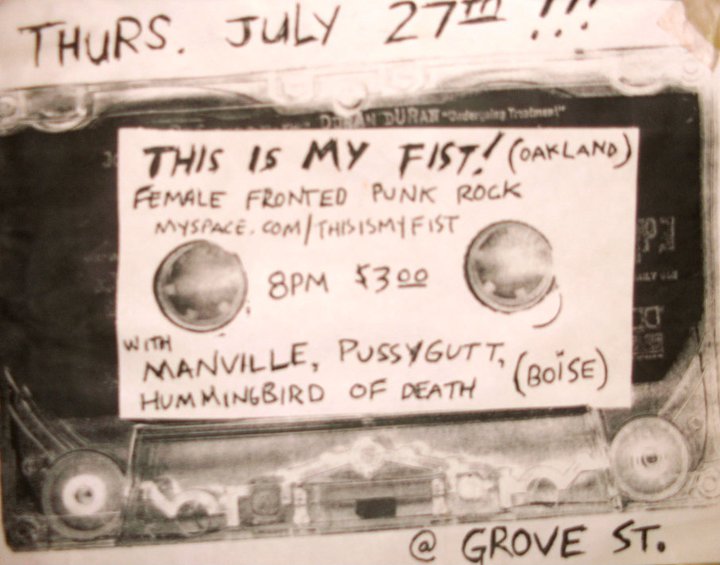 THURS. JULY 27TH !!!
DURAN DURAN "Undergoing Treatment"
THIS IS MY FIST! (OAKLAND)
FEMALE FRONTED PUNK ROCK
MYSPACE.COM/THISISMYFIST
8PM $3.00
WITH
MANVILLE, PUSSYGUTT,
HUMMINGBIRD OF DEATH (BOÏSE)
@ GROVE ST.